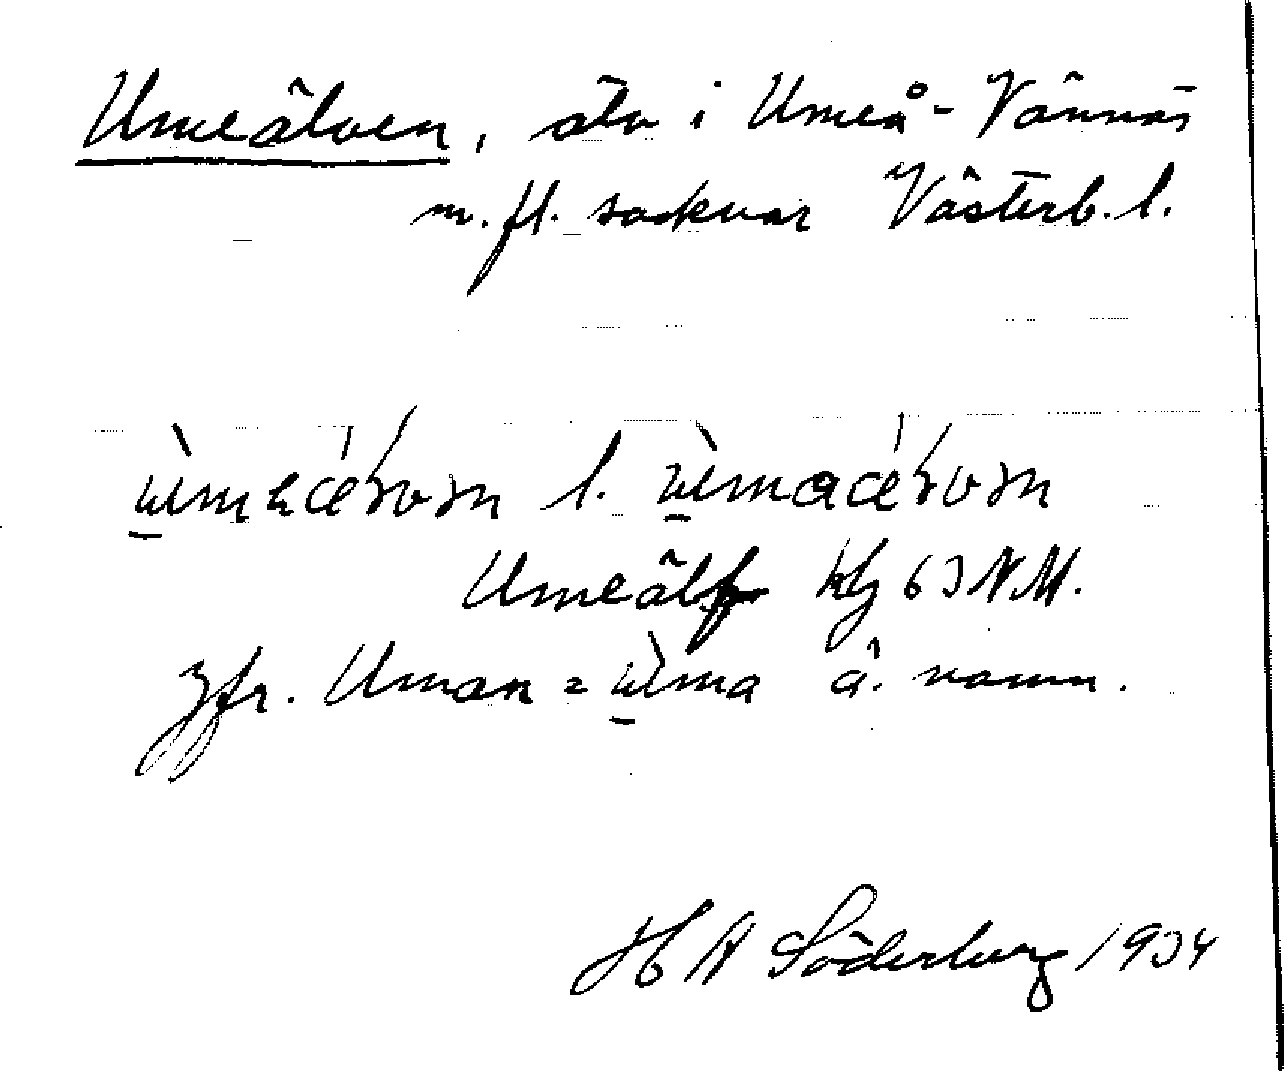 Umeälven, älv i Umeå- Vännäs
m. fl. socknar Västerb. l.
l.
Umeälf kbg 63 NM.
Jfr. Uman = ùma å. namn.
H A Söderberg 1934